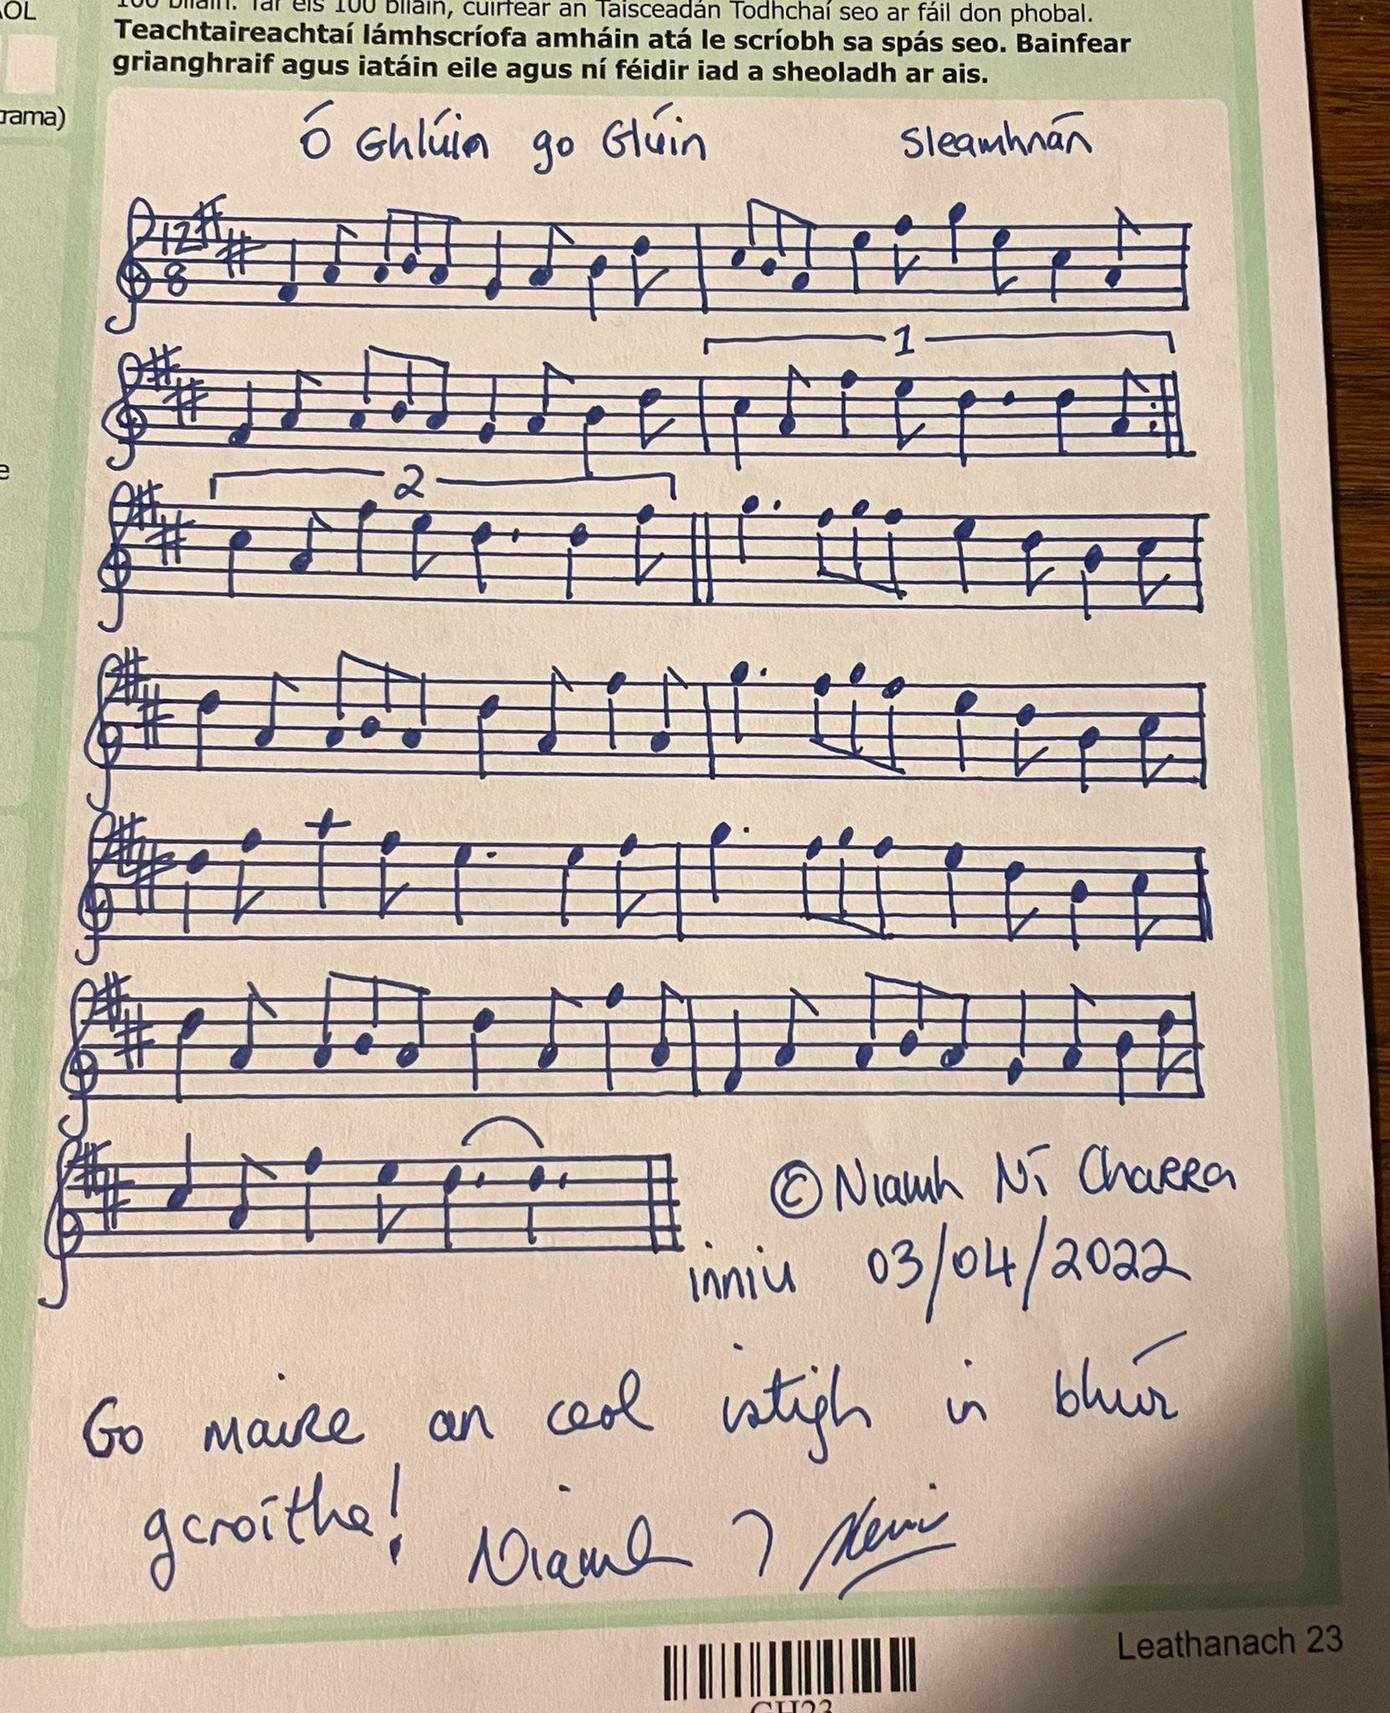 100 bliain. Tar éis 100 bliain, cuirfear an Taisceadán Todhchaí seo ar fáil don phobal.
Teachtaireachtaí lámhscríofa amháin atá le scríobh sa spás seo. Bainfear
grianghraif agus iatáin eile agus ní féidir iad a sheoladh ar ais.
rama)
Ó Ghlúin go Glúin Sleamhnán
12
8
1
2
© Niamh Ní Charra
inniu 03/04/2022
Go maire an ceol istigh in bhúr
gcroíthe! Niamh
Leathanach 23